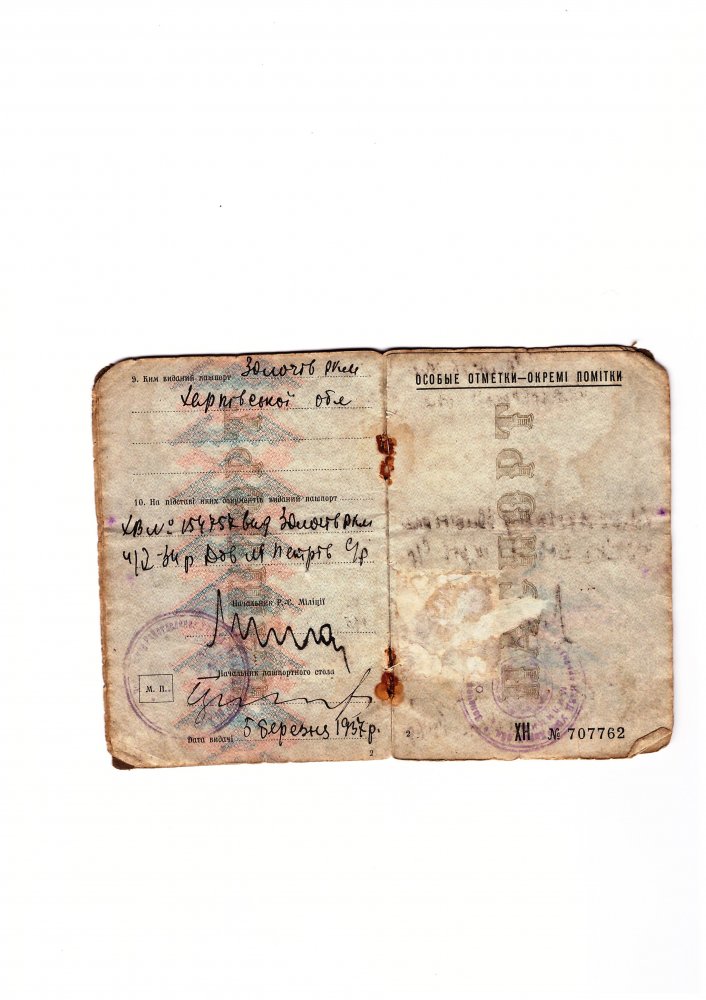 9. Ким виданий пашпорт Золочів РКМ
Харківської обл
10. На підставі яких документів виданий пашпорт
ХВ № 154757 вид Золочів РКМ
4/2-34 р Дов М Петрів С/р
Начальник Р.-С. Міліції
Начальник пашпортного стола
М. П.
Дата видачі 5 березня 1937 р.
2
ОСОБЫЕ ОТМЕТКИ—ОКРЕМІ ПОМІТКИ
ПАСПОРТ
2
ХН № 707762